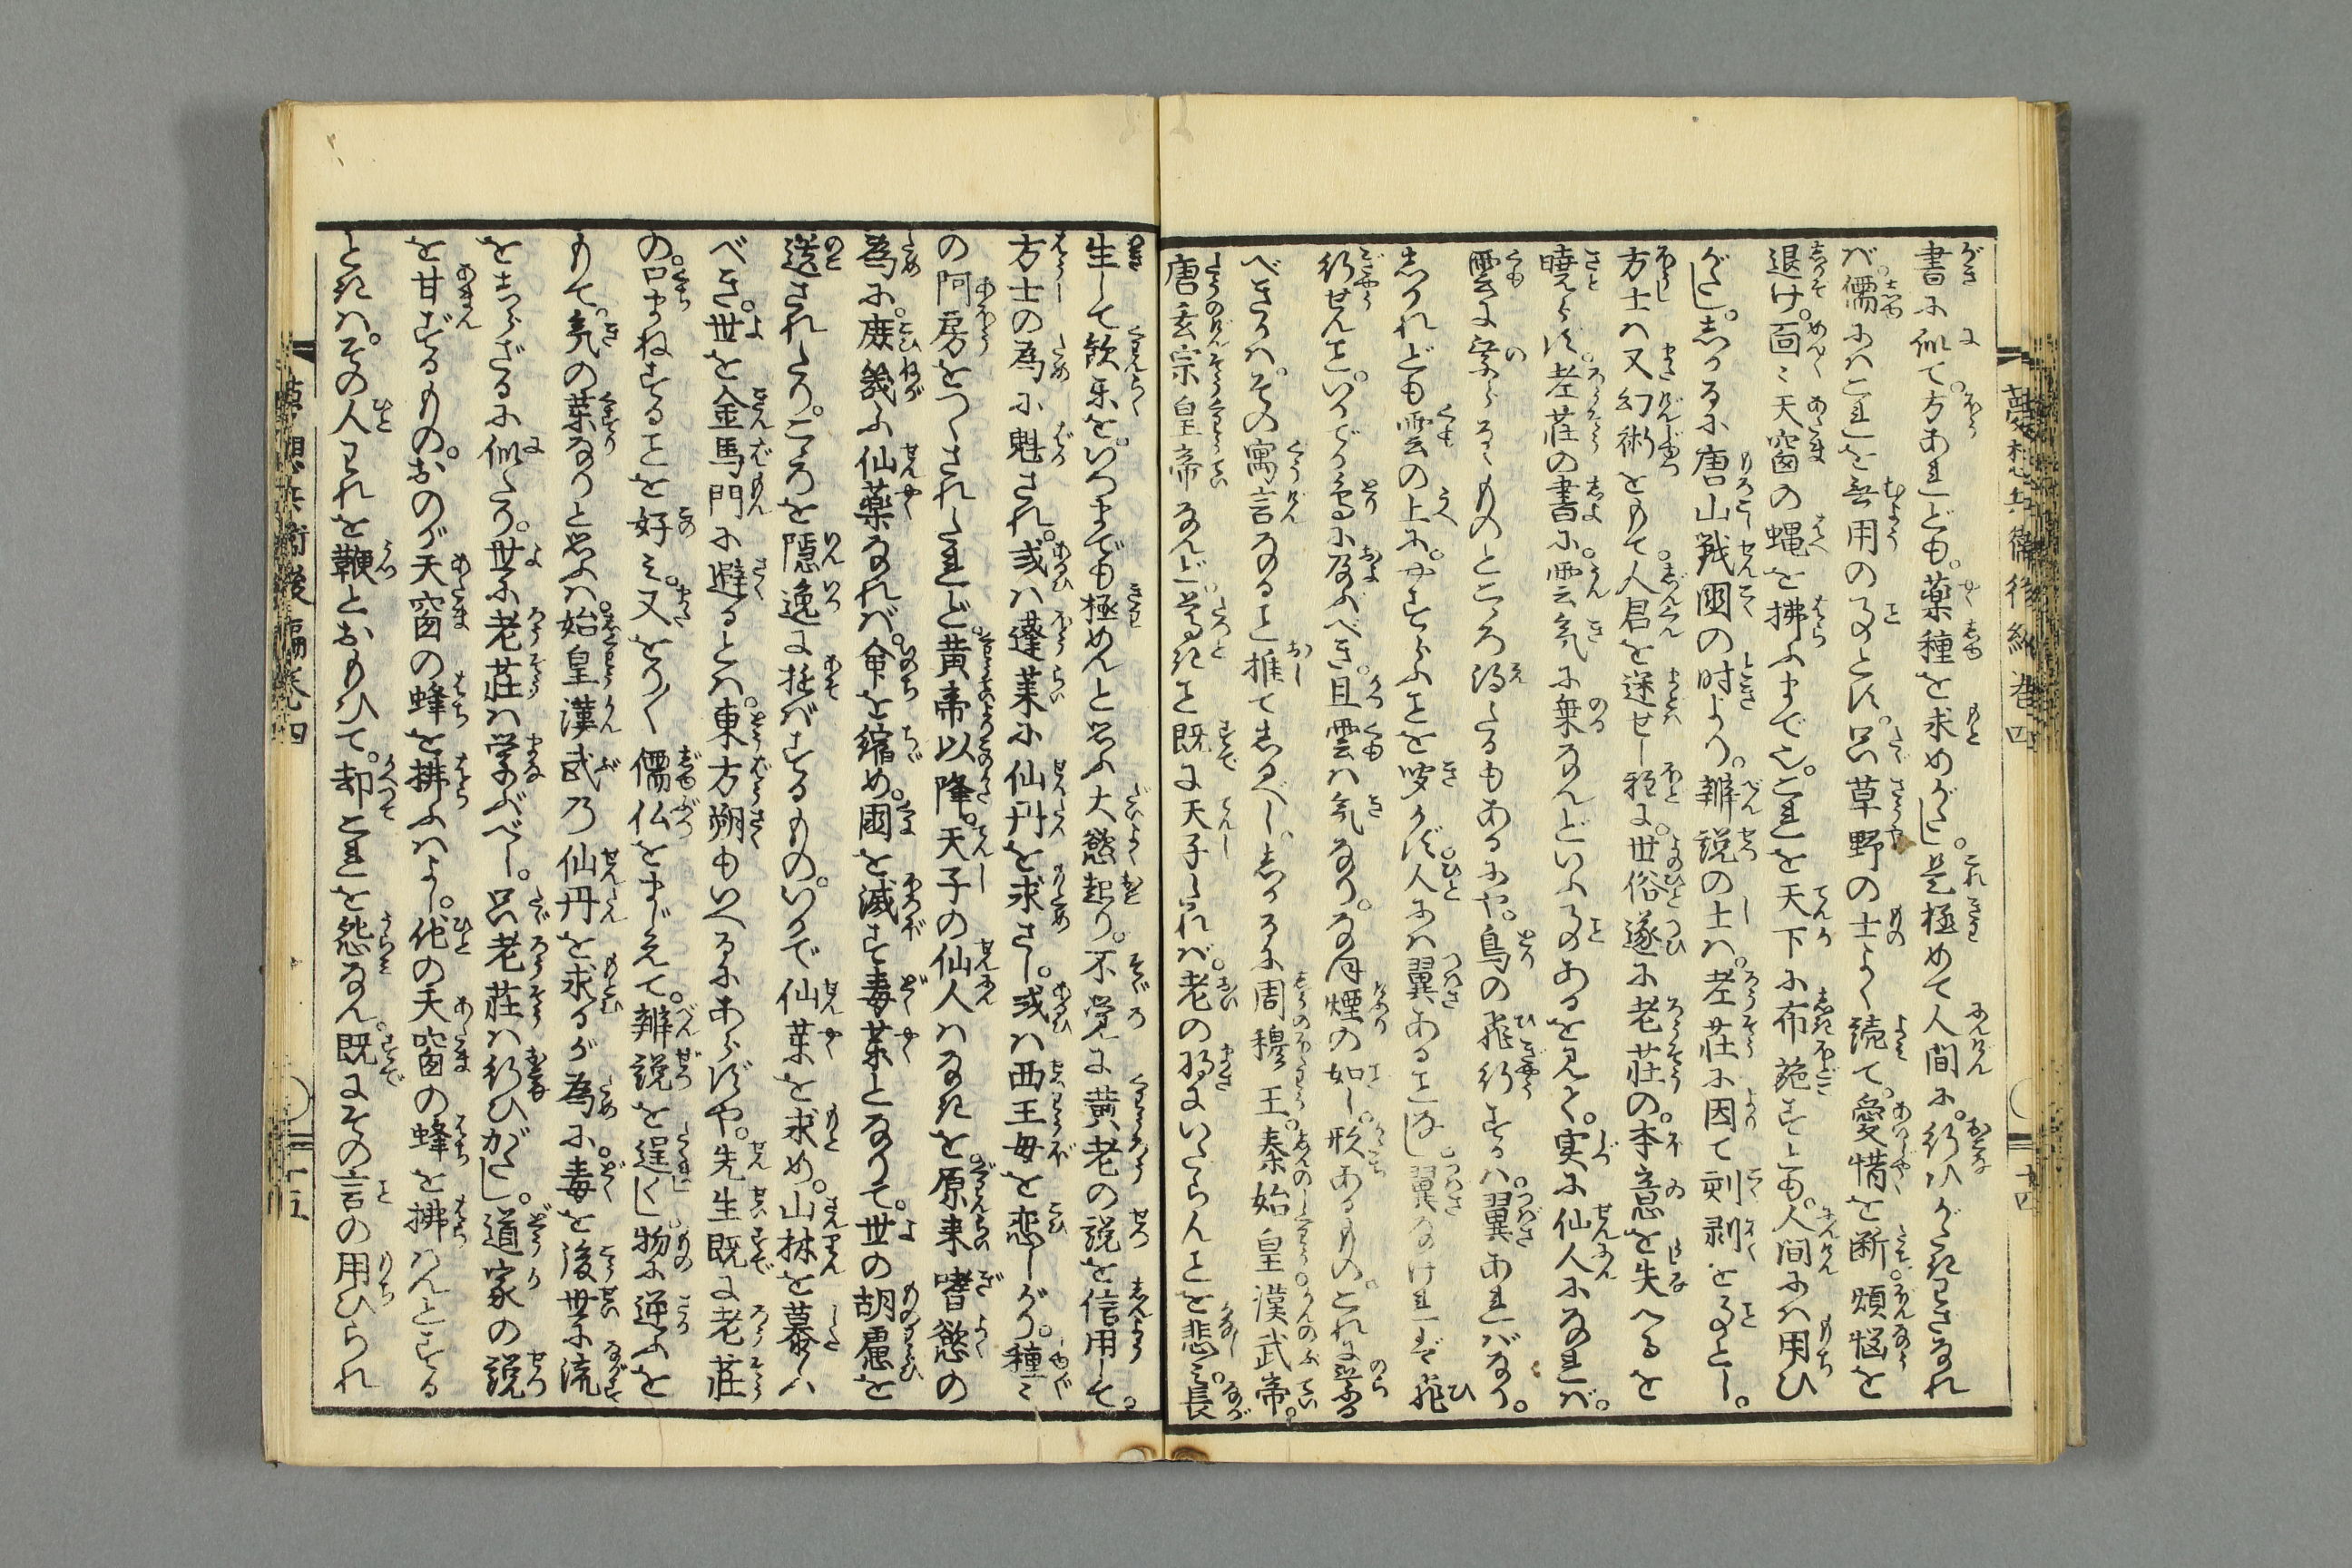 夢想兵衛後編巻四
十四
書に似て。方あれども。薬種を求めがたし。是極めて人間に。行ひがたきわざなれ
ば。儒にはこれを無用の事とす。只草野の士よく読て。愛惜を断。煩悩を
退け。面〻天窗の蝿を拂ふまでも。これを天下に布施すとも。人間には用ひ
がたし。しかるに唐山戦國の时より。辨説の士は。老荘に因て刻剥を事とし。
方士は又幻術をもて。人君を迷せし程に。世俗遂に老荘の。本意を失へるを
暁らず。老荘の書に。雲気に乗るなんどいふ事あるを見て。実に仙人になれば。
雲に乗らるゝものとこゝろ得たるもあるにや。鳥の飛行するは。翼あればなり。
しかれども雲の上に。やすらふことを聞かず。人には翼あることなし。翼なけれど飛
行せんこと。いかでか鳥に及ぶべき。且雲は気なり。なほ煙の如し。形あるもの。これに乗る
べきかは。その寓言なること推て知るべし。しかるに周穆王。秦始皇漢武帝。
唐玄宗皇帝なんど。尊きこと既に天子たれば。老の将にいたらんことを悲み。長
生して歓楽を。いつまでも極めんと思ふ大慾起り。不覚に黄老の説を信用して。
方士の為に魁され。或は蓬莱に仙丹を求さし。或は西王母を恋しがり。種〻
の阿房をつくされたれど。黄帝以降。天子の仙人はなきを。原来嗜慾の
為に。庶幾ふ仙薬なれば。命を縮め。國を滅す毒薬となりて。世の胡慮を
遺されたり。こゝろを隠逸に遊ばするもの。いかで仙薬を求め。山林を慕はん
べき。世を金馬門に避るとは。東方朔もいへるにあらずや。先生既に老荘
の。口まねすることを好み。又をり〳〵儒仏をまじえて。辨説を逞くし。物に逆ふを
もて。気の薬なりと思ふは。始皇漢武の仙丹を求るが為に。毒を後世に流
をしらざるに似たり。世に老荘は学ぶべし。只老荘は行ひがたし。道家の説
を甘ずるもの。おのが天窗の蜂を拂ふはよし。他の天窗の蜂を拂はんとする
ときは。その人われを鞭とおもひて。却これを怨なん。既にその言の用ひられ
夢想兵衛後編巻四
十五